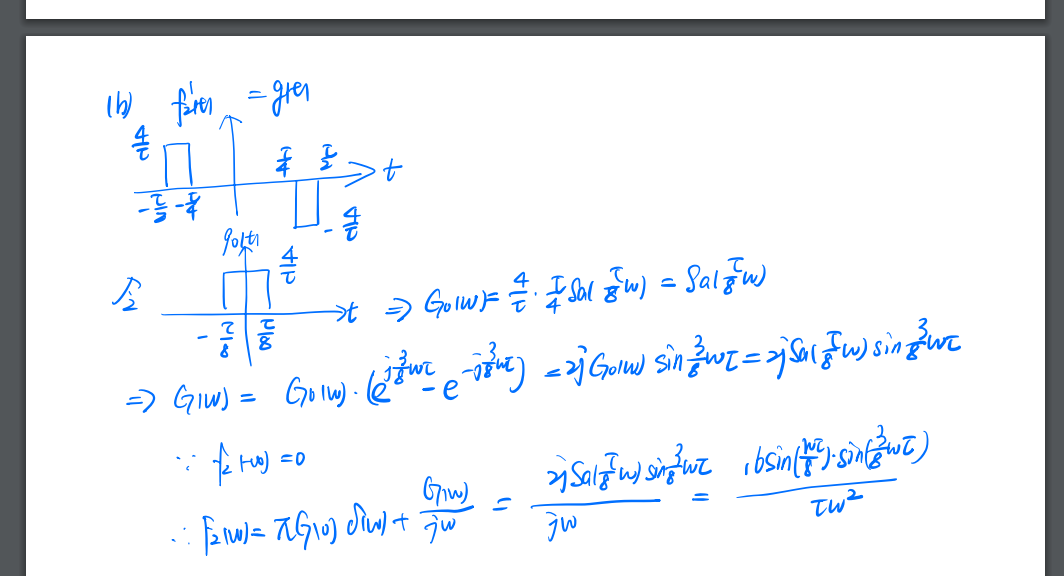 (b) f₂'(t) = g(t)
4/τ τ/4 τ/2 t
-τ/2 -τ/4 -4/τ
g₀(t)
4/τ
令 t ⇒ G₀(ω) = 4/τ · τ/4 Sa(τ/8 ω) = Sa(τ/8 ω)
-τ/8 τ/8
⇒ G(ω) = G₀(ω) · (e^{j3/8ωτ} - e^{-j3/8ωτ}) = 2jG₀(ω) sin 3/8ωτ = 2jSa(τ/8 ω) sin 3/8ωτ
∵ f₂(-∞) = 0
∴ F₂(ω) = πG(0) δ(ω) + G(ω)/jω = 2jSa(τ/8 ω) sin 3/8ωτ / jω = 16sin(ωτ/8)·sin(3/8ωτ) / τω²